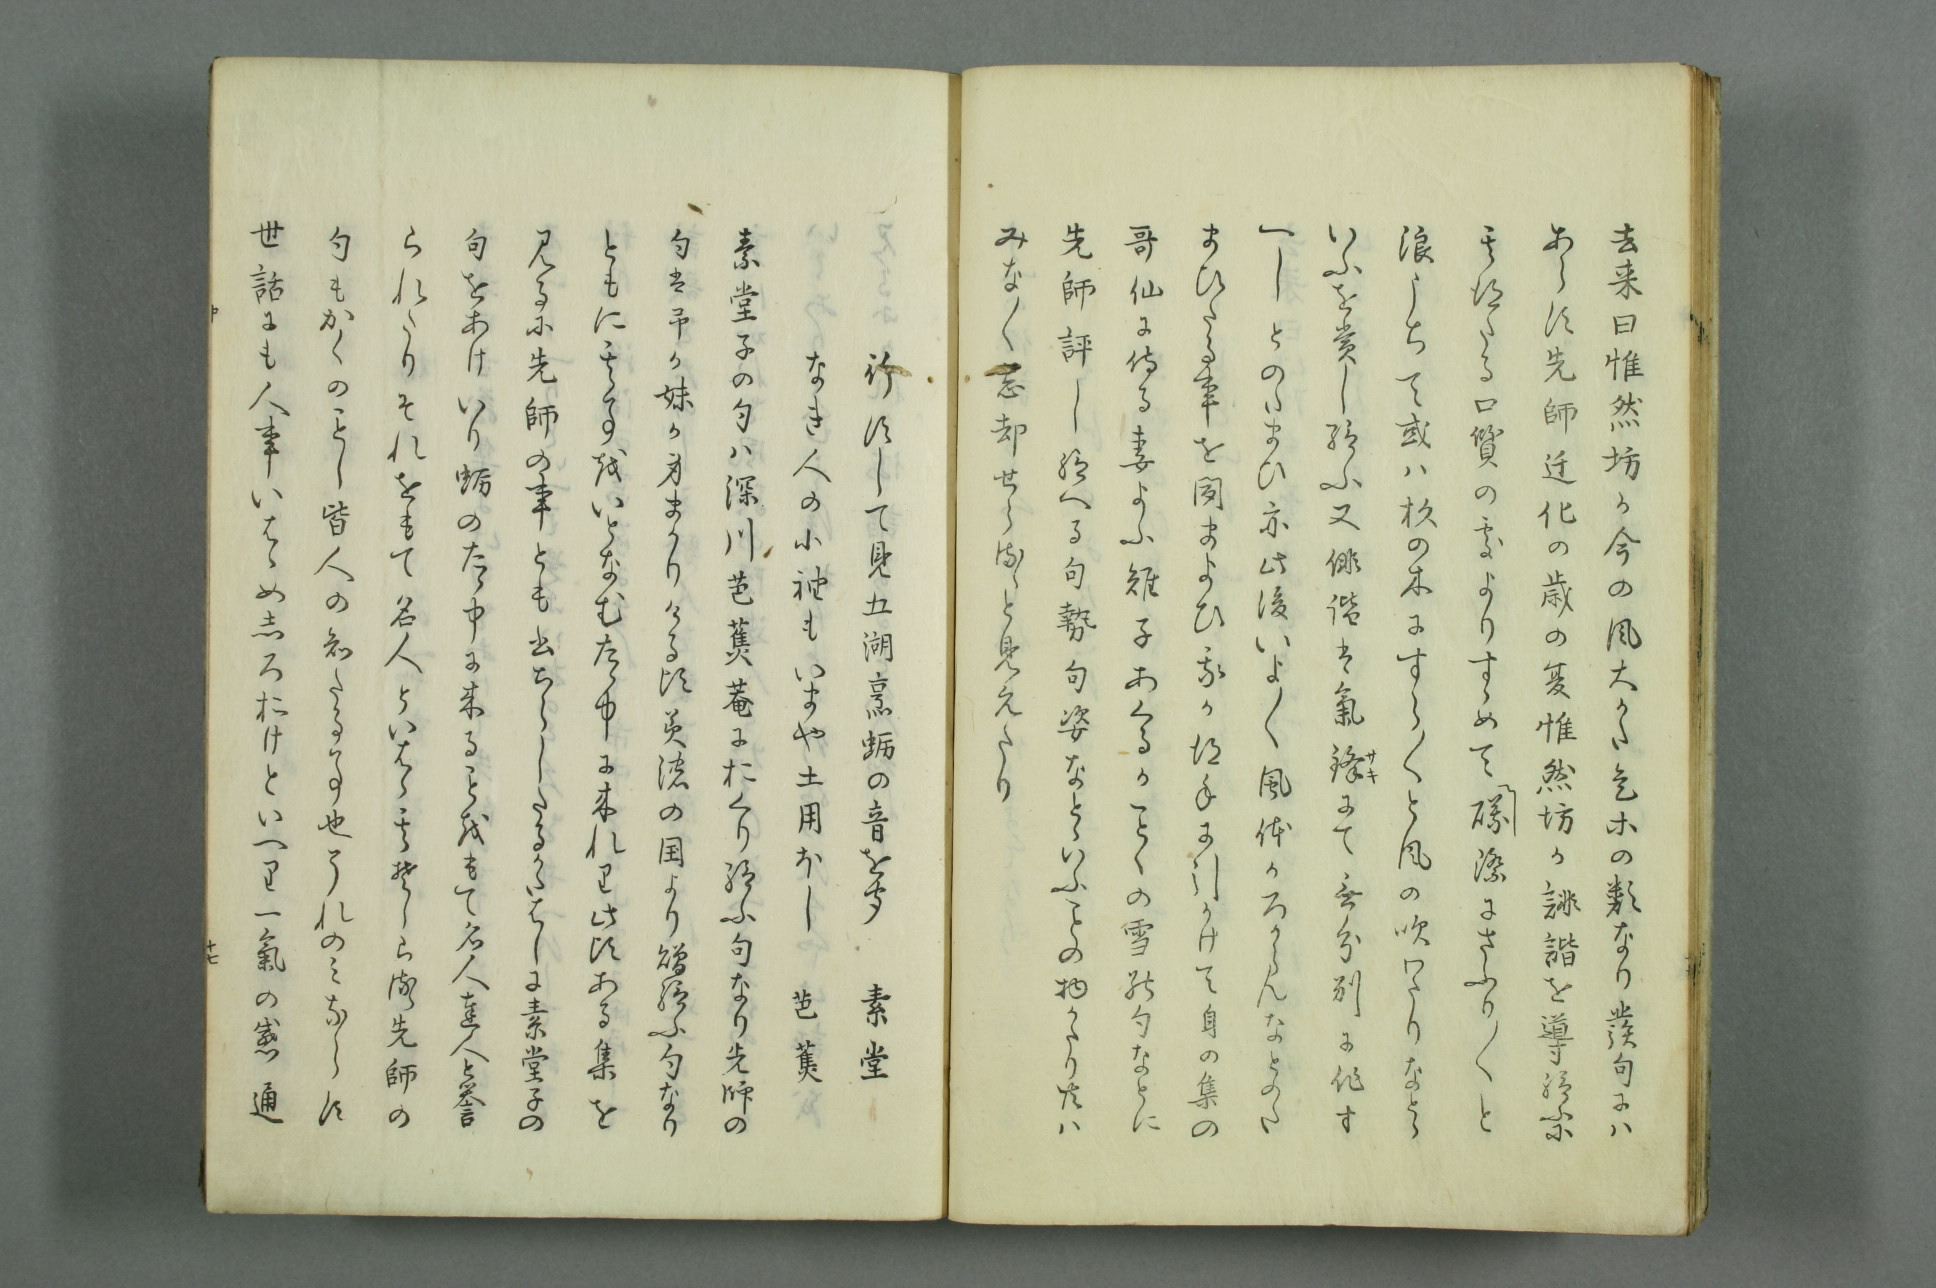 去来曰惟然坊か今の風大かた是ホの類なり發句にハ
あらす先師迁化の歳の夏惟然坊か誹諧を導給ふに
其秀たる口質の處よりすゝめて磯際にさふり〱と
浪うちて或ハ杉の木にすう〱と風の吹わたりなとゝ
いふを賞し給ふ又俳諧は氣鋒にて無分別に作す
サキ
へしとのたまひ亦此後いよ〱風体かろからんなとのた
まひたる事を聞まよひ我か得手に引かけて自の集の
哥仙に侍る妻よふ雉子あくるかことくの雪の句なとに
先師評し給へる句勢句姿なとゝいふことの物かたり共ハ
みな〱忘却せられると見えたり
行すして見五湖煎蛎の音を聞 素堂
なき人の小袖もいまや土用ほし 芭蕉
素堂子の句ハ深川芭蕉菴におくり給ふ句なり先師の
句は予か妹か身まかりける比美濃の国より贈給ふ句なり
ともに其事をいとなむたゝ中に来れり此比ある集を
見るに先師の事とも書ちらしたるかたはしに素堂子の
句をあけいり蛎のたゝ中に来ることをもて名人達人と誉
られたりそれをもて名人といはゝ其そしらす先師の
句もかくのことし皆人の知たる事也それのミならす
世話にも人事いはゝめしろおけといへり一氣の感通
中
十七